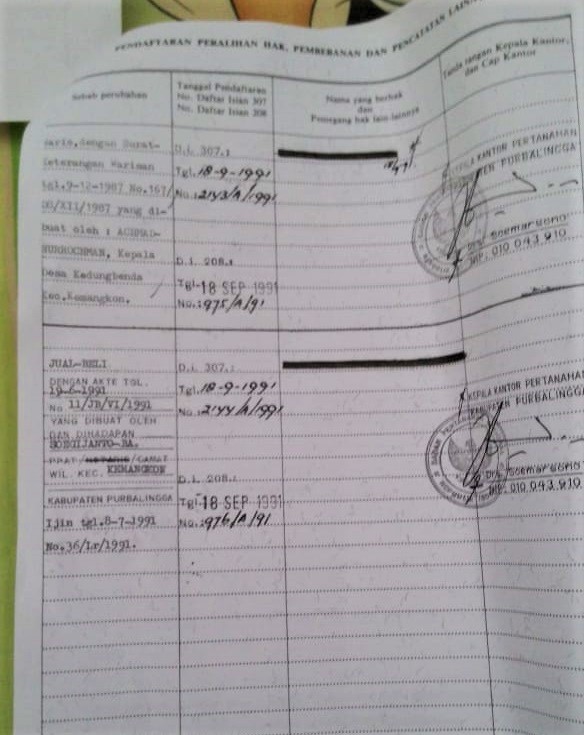 PENDAFTARAN PERALIHAN HAK, PEMBEBANAN DAN PENCATATAN LAINNYA
Sebab perubahan
Tanggal Pendaftaran
No. Daftar Isian 307
No. Daftar Isian 208
Nama yang berhak
dan
Pemegang hak lain-lainnya
Tanda tangan Kepala Kantor,
dan Cap Kantor
waris, dengan Surat-
keterangan Warisan
tgl.9-12-1987 No.167/
/XII/1987 yang di-
buat oleh : ACHMAD-
NURROCHMAN, Kepala
Desa Kedungbenda
Kec.Kemangkon.
D.i. 307.:
Tgl.18-9-1991
No.:2143/A/1991
D.i. 208.:
Tgl.18 SEP 1991
No.:975/A/91
KEPALA KANTOR PERTANAHAN
KABUPATEN PURBALINGGA
Drs. Soemarsono
NIP: 010 043 910
JUAL-BELI
DENGAN AKTE TGL.
19-6-1991
No 11/JB/VI/1991
YANG DIBUAT OLEH
DAN DIHADAPAN
SOEGIJANTO-BA.
PPAT/NOTARIS/CAMAT
WIL. KEC. KEMANGKON
KABUPATEN PURBALINGGA
Ijin tgl.8-7-1991
No.36/Lr/1991.
D.i. 307.:
Tgl.18-9-1991
No.:2144/A/1991
D.i. 208.:
Tgl.18 SEP 1991
No.:976/A/91
KEPALA KANTOR PERTANAHAN
KABUPATEN PURBALINGGA
Drs. Soemarsono
NIP: 010 043 910